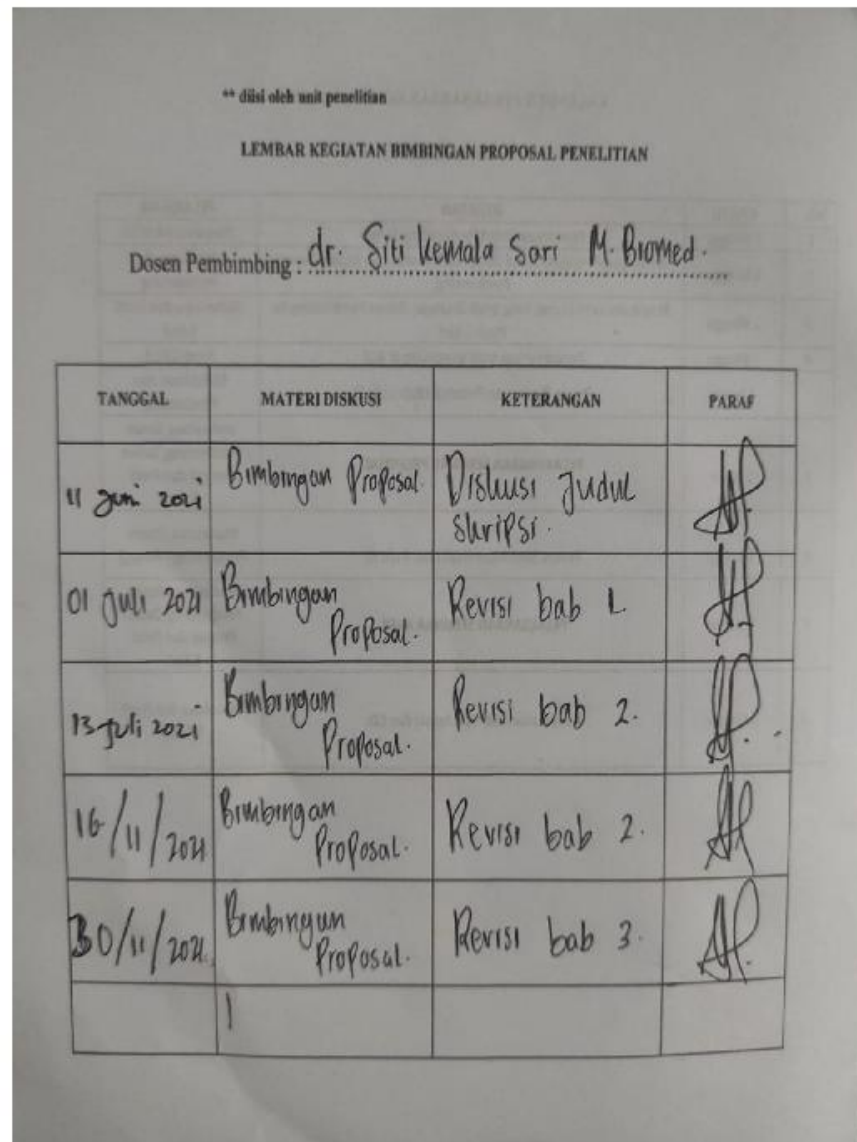 ** diisi oleh unit penelitian
LEMBAR KEGIATAN BIMBINGAN PROPOSAL PENELITIAN
Dosen Pembimbing : dr. Siti Kemala Sari M. Biomed.
TANGGAL MATERI DISKUSI KETERANGAN PARAF
11 Juni 2021 Bimbingan Proposal. Diskusi Judul
skripsi.
01 Juli 2021 Bimbingan Revisi bab 1.
Proposal.
13 Juli 2021 Bimbingan Revisi bab 2.
Proposal.
16/11/2021 Bimbingan Revisi bab 2.
Proposal.
30/11/2021 Bimbingan Revisi bab 3.
Proposal.